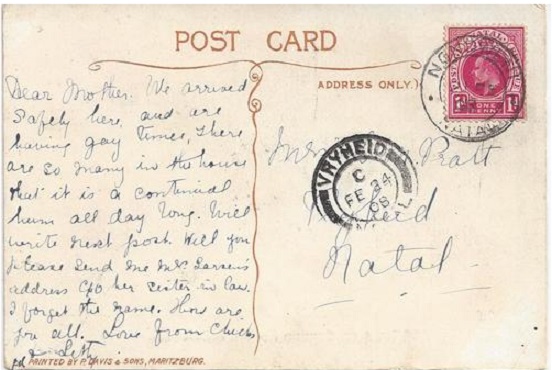 POST CARD
ADDRESS ONLY.
Dear Mother. We arrived
safely here, and are
having gay times, There
are so many in the house
that it is a continual
hum all day long. Will
write next post. Will you
please send me Mrs Larsen's
address C/o her sister in law.
I forget the name. How are
you all. Love from
PRINTED BY P. DAVIS & SONS, MARITZBURG.
POSTAGE
1D
ONE
PENNY
1D
NATAL
VRYHEID
C
FE 24
08
Pratt
Natal